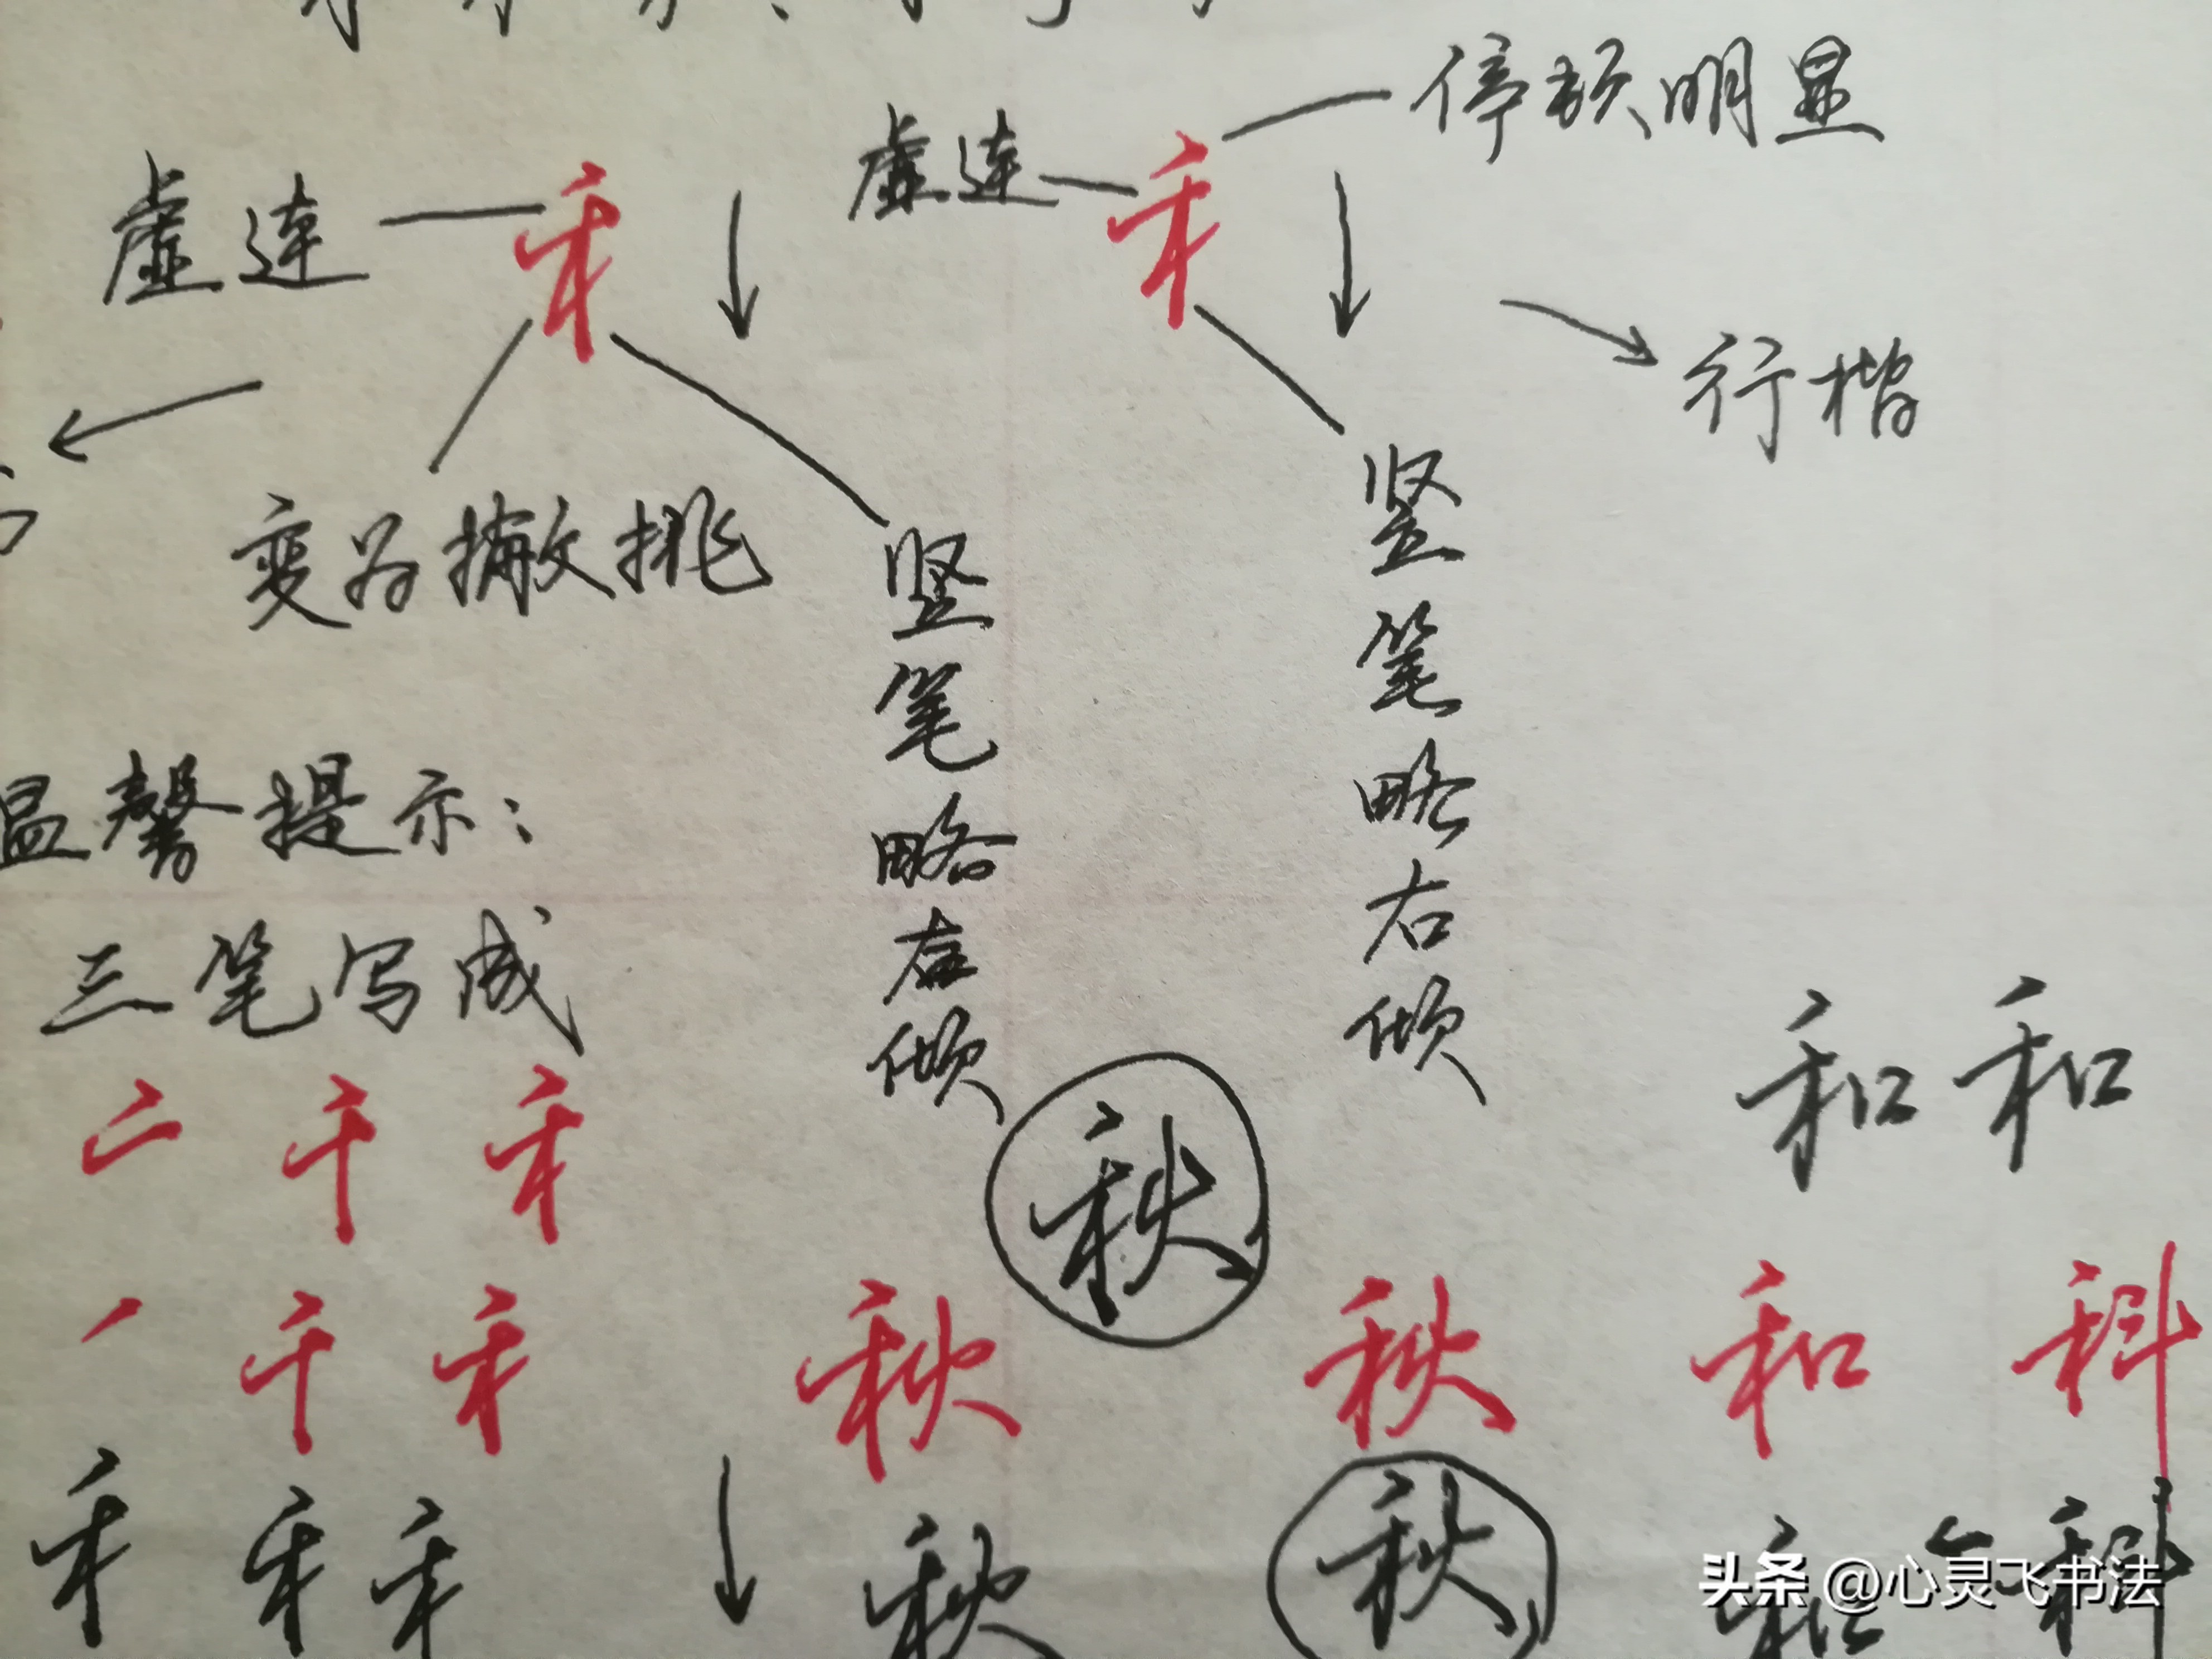 停顿明显
虚连
虚连
禾
禾
行楷
变为撇挑
竖笔略左倾
竖笔略右倾
温馨提示：
三笔写成
和和
二 千 禾
秋
丿 千 禾 秋 秋 和 科
禾 禾 禾 秋 秋 和 科
头条 @心灵飞书法